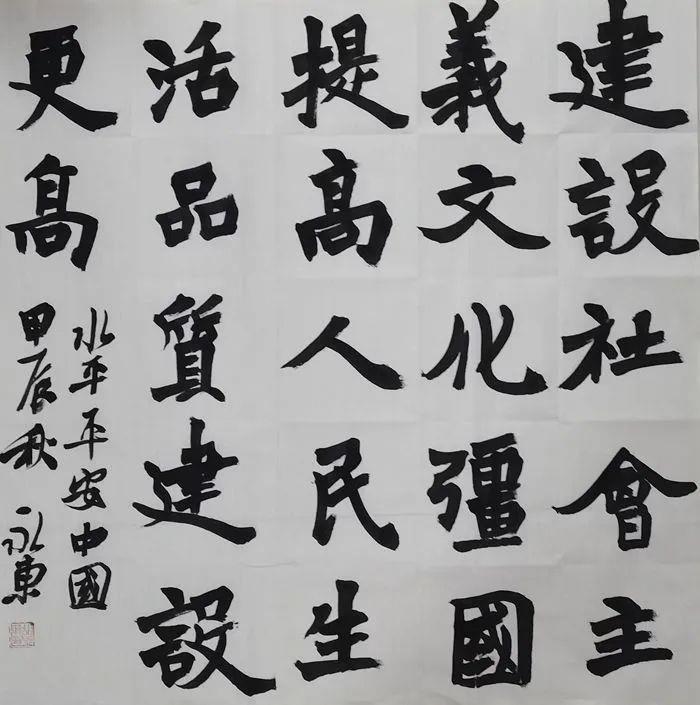 建設社會主
義文化彊國
提高人民生
活品質建設
更髙
水平平安中國
甲辰秋 永東